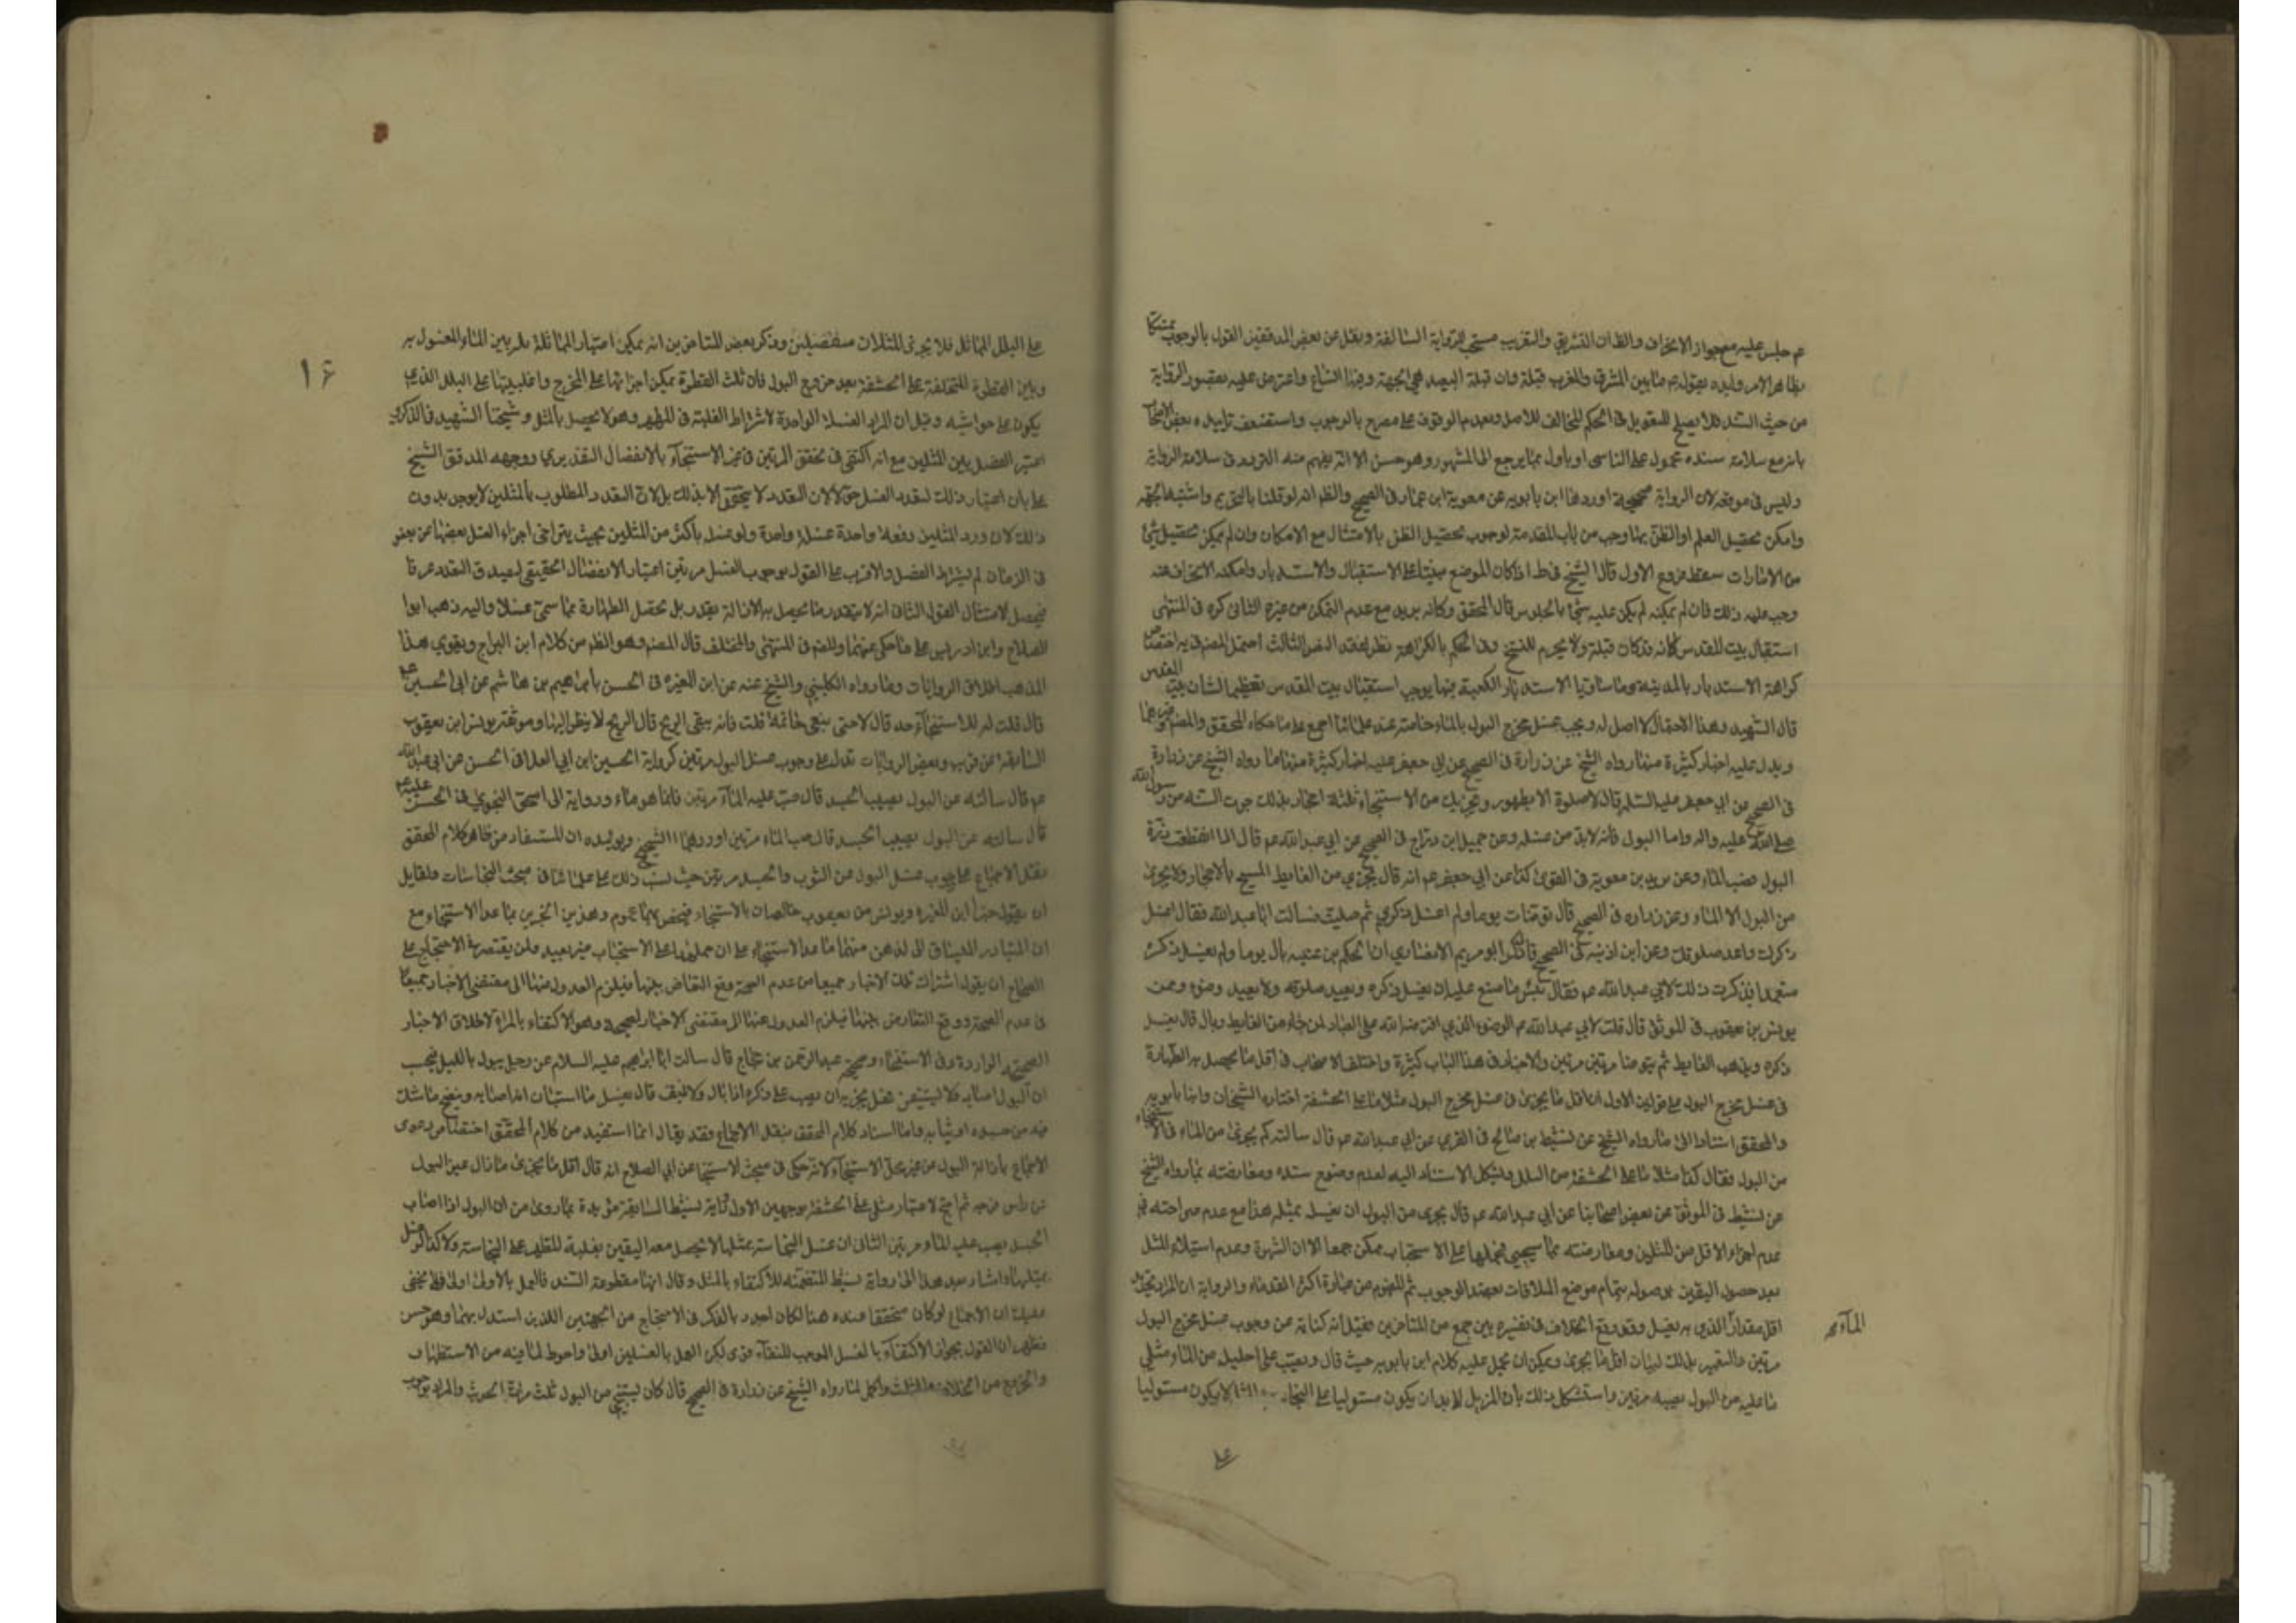 عم جلس عليه مع جواز الانحراف والظ ان التشريق والتغريب مستحب للرواية السالفة ونقل عن بعض المدققين القول بالوجوب تمسكا
بظاهر الامر وايده بقوله عم ما بين المشرق والمغرب قبلة وان قبلة البعيد هي الجهة وفيها اتساع واعترض عليه بقصور الرواية
من حيث السند فلا يصلح للتعويل في الحكم المخالف للاصل وبعدم الوقوف على مصرح بالوجوب واستضعف تاييده بعض الاصحاب
بانه مع سلامة سنده محمول على الناسى او ياول بما يرجع الى المشهور وهو حسن الا انه يفهم منه التردد فى سلامة الرواية
وليس فى موقعه لان الرواية صحيحة اوردها ابن بابويه عن معوية ابن عمار فى الصحيح والظ انه لو قلنا بالتحريم واشتبهت الجهة
وامكن تحصيل العلم او الظن بها وجب من باب المقدمة لوجوب تحصيل الظن بالامتثال مع الامكان وان لم يمكن تحصيل شئ
من الامارات سقط فروع الاول قال الشيخ فى ط اذا كان الموضع مبنيا على الاستقبال والاستدبار وامكنه الانحراف عنه
وجب عليه ذلك فان لم يمكنه لم يكن عليه شئ بالجلوس قال المحقق وكانه يريد مع عدم التمكن من غيره الثانى كره فى المنتهى
استقبال بيت المقدس لانه قد كان قبلة ولا يحرم للنسخ وفى الحكم بالكراهة نظر لفقد النص الثالث احتمل المصنف فى يه اختصاص
كراهة الاستدبار بالمدينة وما ساواها لاستدبار الكعبة فيها بوجوب استقبال بيت المقدس تعظيما لشان بيت المقدس
قال الشهيد وهذا الاحتمال لا اصل له ويجب غسل مخرج البول بالماء خاصة عند علمائنا اجمع على ما حكاه المحقق والمصنف وغيرهما
ويدل عليه اخبار كثيرة منها ما رواه الشيخ عن زرارة فى الصحيح
فى الصحيح عن ابي جعفر عليه السلم قال لا صلوة الا بطهور ويجزيك من الاستنجاء ثلثة احجار بذلك جرت السنة من رسول الله
صلى الله عليه واله واما البول فانه لا بد من غسله وعن جميل ابن دراج فى الصحيح عن ابي عبد الله عم قال اذا انقطعت درة
البول فصب الماء وعن بريد بن معوية فى القوى كذا عن ابي جعفر عم انه قال يجزي من الغايط المسح بالاحجار ولا يجزى
من البول الا الماء وعن زراره فى الصحيح قال توضات يوما ولم اغسل ذكري ثم صليت فسالت ابا عبد الله فقال اغسل
ذكرك واعد صلوتك وعن ابن اذينة فى الصحيح قال ذكر ابو مريم الانصاري ان الحكم بن عتيبه بال يوما ولم يغسل ذكره
متعمدا فذكرت ذلك لابي عبد الله عم فقال بئس ما صنع عليه ان يغسل ذكره ويعيد صلوته ولا يعيد وضوءه وعن
يونس بن يعقوب فى الموثق قال قلت لابي عبد الله عم الوضوء الذي افترضه الله على العباد لمن جاء من الغايط او بال قال يغسل
ذكره ويذهب الغايط ثم يتوضا مرتين مرتين والاخبار فى هذا الباب كثيرة واختلف الاصحاب فى اقل ما يحصل به الطهارة
فى غسل مخرج البول على قولين الاول ان اقل ما يجزى فى غسل مخرج البول مثلا ما على الحشفة اختاره الشيخان وابنا بابويه
والمحقق استنادا الى ما رواه الشيخ عن نشيط بن صالح فى القوي عن ابي عبد الله عم قال سالته كم يجزى من الماء فى الاستنجاء
من البول فقال كذا مثلا ما على الحشفة من البلل ويشكل الاستناد اليه لعدم وضوح سنده ومعارضته بما رواه الشيخ
عن نشيط فى الموثق عن بعض اصحابنا عن ابي عبد الله عم قال يجزى من البول ان يغسل بمثله هذا مع عدم صراحته فى
عدم اجزاء الاقل من المثلين ومعارضته بما سيجيى فحملها على الاستحباب ممكن جمعا الا ان الشهرة وعدم استيلاء المثل
بعد حصول اليقين بوصوله بتمام موضع الملاقات يعضد الوجوب ثم المفهوم من عبارة اكثر القدماء والرواية ان المراد تحديد
اقل مقدار الذي به يغسل وقد وقع الخلاف فى تفسيره بين جمع من المتاخرين فقيل انه كناية عن وجوب غسل مخرج البول
مرتين والتعبير بذلك لبيان اقل ما يجزى ويمكن ان يحمل عليه كلام ابن بابويه حيث قال ويصب على احليله من الماء مثلي
ما عليه من البول يصبه مرتين واستشكل بذلك بان المزيل لا بد ان يكون مستوليا على النجاسة لا يكون مستوليا
الماء
على
١٦
على البلل المماثل فلا يجزى المثلان منفصلين وذكر بعض المتاخرين انه يمكن اعتبار المماثلة بين الماء المغسول به
وبين القطرة المتخلفة على الحشفة بعد خروج البول فان تلك القطرة يمكن اجرائها على المخرج واغلبيتها على البلل الذي
يكون على حواشيه وقيل ان المراد الغسلة الواحدة لاشتراط الغلبة فى المطهر وهو لا يحصل بالمثل وشيخنا الشهيد فى الذكرى
اعتبر الفصل بين المثلين مع انه اكتفى فى تحقق المرتين فى غير الاستنجاء بالانفصال التقديري ووجهه المدقق الشيخ
على بان اعتبار ذلك لتعدد الغسل حق لا لان التعدد لا يتحقق الا بذلك بل لان التعدد المطلوب بالمثلين لا يوجد بدون
ذلك لان ورود المثلين دفعة واحدة غسلة واحدة ولو غسل باكثر من المثلين بحيث يتراخى اجزاء الغسل بعضها عن بعض
فى الزمان لم يشترط الفصل والاقرب على القول بوجوب الغسل مرتين اعتبار الانفصال الحقيقي ليصدق التعدد عرفا
فيحصل الامتثال القول الثانى انه لا يتقدر ما يحصل به الازالة بقدر بل تحصل الطهارة بما سمى غسلا واليه ذهب ابوا
الصلاح وابن ادريس على ما حكى عنهما والمصنف فى المنتهى والمختلف قال المصنف وهو الظ من كلام ابن البراج ويقوي هذا
المذهب اطلاق الروايات وما رواه الكليني والشيخ عنه عن ابن المغيرة فى الحسن بابراهيم بن هاشم عن ابي الحسن عم
قال قلت له للاستنجاء حد قال لا حتى ينقى ما ثمة قلت فانه يبقى الريح قال الريح لا ينظر اليها وموثقة يونس ابن يعقوب
السابقة عن قرب وبعض الروايات تدل على وجوب غسل البول مرتين كرواية الحسين ابن ابي العلا فى الحسن عن ابي عبد الله
عم قال سالته عن البول يصيب الجسد قال صب عليه الماء مرتين فانما هو ماء ورواية ابى اسحق النحوي فى الحسن عليه
قال سالته عن البول يصيب الجسد قال صب الماء مرتين اوردهما الشيخ ويؤيده ان المستفاد من ظاهر كلام المحقق
نقل الاجماع على وجوب غسل البول من الثوب والجسد مرتين حيث نسب ذلك على علمائنا فى مبحث النجاسات ولقايل
ان يقول خبرا ابن المغيره ويونس بن يعقوب خاصان بالاستنجاء فيخص بهما عموم وهذين الخبرين بما عدا الاستنجاء مع
ان المتبادر المنساق الى الذهن منهما ما عدا الاستنجاء على ان حملهما على الاستحباب غير بعيد ولمن يقتصر فى الاحتجاج على
الصحاح ان يقول اشتراك تلك الاخبار جميعا من عدم الصحة وقع التعارض بينها فيلزم العدول منها الى مقتضى الاخبار جميعا
فى عدم الصحة ووقع التعارض بينها فيلزم العدول عنها الى مقتضى الاخبار الصحيحة وهو الاكتفاء بالمرة لاطلاق الاخبار
الصحيحة الواردة فى الاستنجاء وصحيحة عبد الرحمن بن حجاج قال سالت ابا ابراهيم عليه السلام عن رجل يبول بالليل فيحسب
ان البول اصابه فلا يستيقن فهل يجزيه ان يصب على ذكره اذا بال ولا ينشف قال يغسل ما استبان انه اصابه وينضح ما شك
فيه من جسده او ثيابه واما اسناد كلام المحقق بنقل الاجماع فقد يقال انما استفيد من كلام المحقق اختصاص دعوى
الاجماع بازالة البول عن غير محل الاستنجاء لانه حكى فى مبحث الاستنجا عن ابي الصلاح انه قال اقل ما يجزى ما ازال عين البول
عن راس فرجه ثم احتج لاعتبار مثلى ما على الحشفة بوجهين الاول رواية نشيط السابقة مؤيدة بما روى من ان البول اذا اصاب
الجسد يصب عليه الماء مرتين الثانى ان غسل النجاسة بمثلها لا يحصل معه اليقين بغلبة المطهر على النجاسة ولا كذا لو غسل
بمثليها واشار بعد هذا الى رواية نشيط المتضمنة للاكتفاء بالمثل وقال انها مقطوعة السند فالعمل بالاولى اولى فلا يخفى
عليك ان الاجماع لو كان متحققا عنده هنا لكان اجدر بالذكر فى الاحتجاج من الجهتين اللذين استدل بهما وهو حسن
فظهر ان القول بجواز الاكتفاء بالغسل الموجب للنقاء قوى لكن العمل بالغسلين اولى واحوط لما فيه من الاستظهار
والخروج من الخلاف والثلث واكمل لما رواه الشيخ عن زرارة فى الصحيح قال كان يستنجي من البول ثلث مرات الحديث والمراد بوجوب